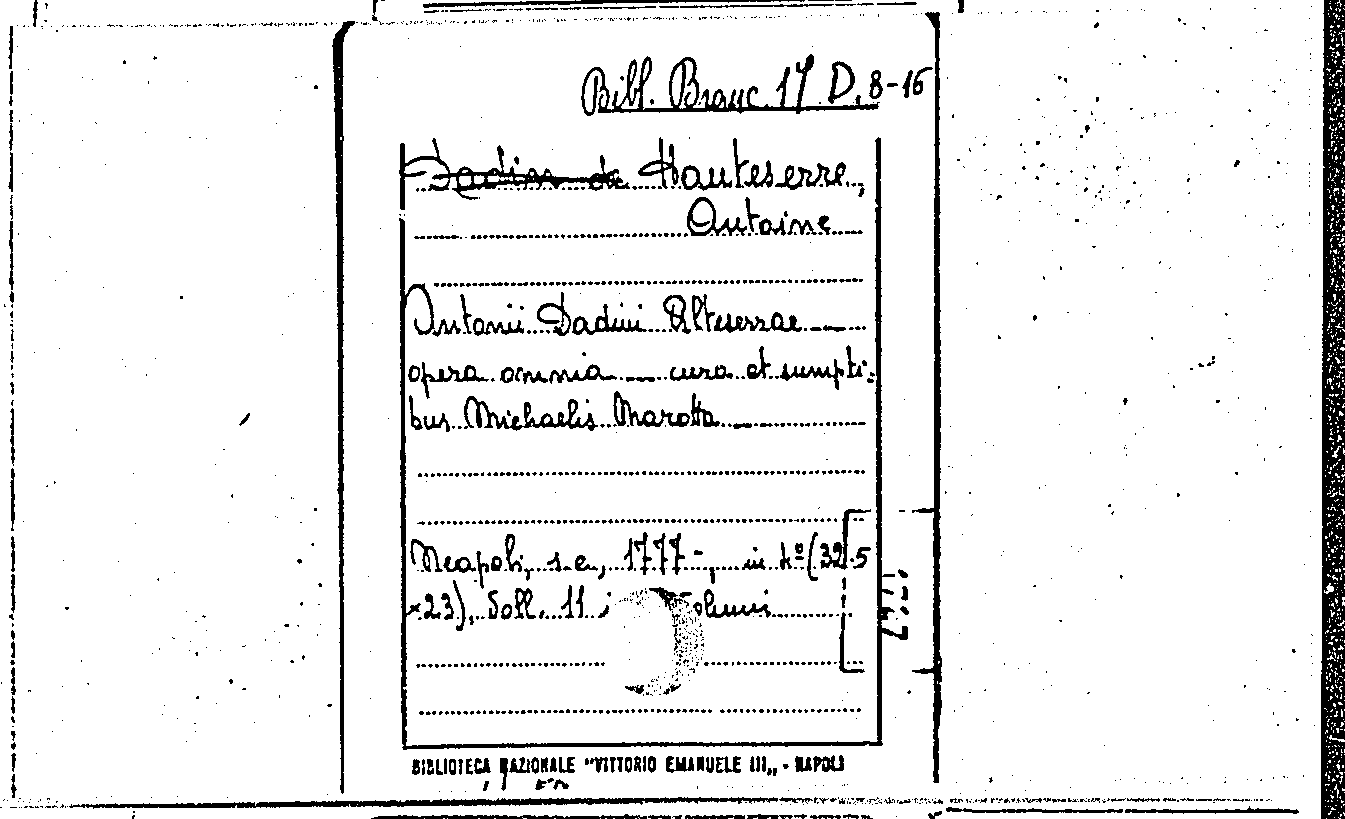 Bibl. Branc. 17 D. 8-16
Dadin de Hauteserre,
Antoine
Antonii Dadini Alteserrae
opera omnia cura et sumpti=
bus Michaelis Marotta
Neapoli, s.e., 1777-, in 4º (32.5
×23), Voll. 11 Volumi
BIBLIOTECA NAZIONALE "VITTORIO EMANUELE III„ - NAPOLI